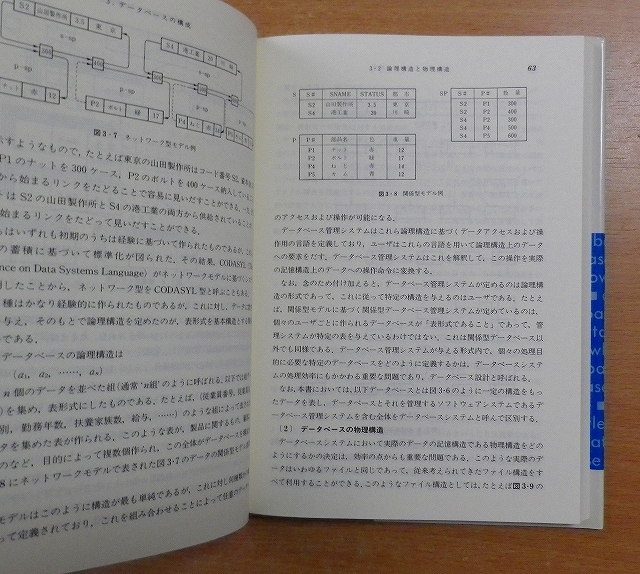 3. データベースの構成
S2 山田製作所 3.5 東 京
S4 港工業 20 川 崎
s-sp
s-sp
300
400
p-sp
p-sp
赤 12
P2 ボルト 緑 17
P4 ねじ 赤 14
図3・7 ネットワーク型モデル例
示すようなもので,たとえば東京の山田製作所はコード番号S2,
P1のナットを300ケース,P2のボルトを400ケース納入している
から始まるリンクをたどることで容易に見いだすことができる.
はS2の山田製作所とS4の港工業の両方から供給されている
始まるリンクをたどって見いだすことができる.
らはいずれも初期のうちは経験に基づいて作られたものであるが,
の蓄積に基づいて標準化が図られた.その結果,CODASYL
ence on Data Systems Language)がネットワークモデルに基づ
したことから,ネットワーク型をCODASYL型と呼ぶこともあ
種はかなり経験的に作られたものであるが,これに対し,データ
与え,そのもとで論理構造を定めたのが,表形式を基本構造とする
である.
データベースの論理構造は
(a₁, a₂, ……, aₙ)
n個のデータを並べた組(通常'n組'のように呼ばれる.
)を集め,表形式にしたものである.たとえば,(従業員番号,
別,勤務年数,扶養家族数,給与,……)のような組によって
タを集めた表が作られる.このような表が,製品に関するもの,
のなど,目的によって複数個作られ,この全体がデータベースを
8にネットワークモデルで表された図3・7のデータの関係型モデル
モデルはこのように構造が最も単純であるが,これに対し
って定義されており,これを組み合わせることによって任意の
3・2 論理構造と物理構造 63
S
S# SNAME STATUS 都 市
S2 山田製作所 3.5 東 京
S4 港工業 20 川 崎
SP
S# P# 数 量
S2 P1 300
S2 P2 400
S4 P2 200
S4 P4 500
S4 P5 600
P
P# 部品名 色 重 量
P1 ナット 赤 12
P2 ボルト 緑 17
P4 ねじ 赤 14
P5 カム 青 12
図3・8 関係型モデル例
のアクセスおよび操作が可能になる.
データベース管理システムはこれら論理構造に基づくデータアクセスおよび操
作用の言語を定義しており,ユーザはこれらの言語を用いて論理構造上のデータ
への要求をだす.データベース管理システムはこれを解釈して,この操作を実際
の記憶構造上のデータへの操作命令に変換する.
なお,念のため付け加えると,データベース管理システムが定めるのは論理構
造の形式であって,これに従って特定の構造を与えるのはユーザである.たとえ
ば,関係型モデルに基づく関係型データベース管理システムが定めているのは,
個々のユーザごとに作られるデータベースが「表形式であること」であって,管
理システムが特定の表を与えているわけではない.これは関係型データベース以
外でも同様である.データベース管理システムが与える形式内で,個々の処理目
的に必要な特定のデータベースをどのように定義するかは,データベースシステ
ムの処理効率にもかかわる重要な問題であり,データベース設計と呼ばれる.
なお,本書においては,以下データベースとは図3・6のように一定の構造をもっ
たデータを表し,データベースとそれを管理するソフトウェアシステムであるデ
ータベース管理システムを含む全体をデータベースシステムと呼んで区別する.
〔2〕 データベースの物理構造
データベースシステムにおいて実際のデータの記憶構造である物理構造をどの
ようにするかの決定は,効率の点からも重要な問題である.このような実際のデ
ータはいわゆるファイルと同じであって,従来考えられてきたファイル構造をす
べて利用することができる.このようなファイル構造としては,たとえば図3・9の